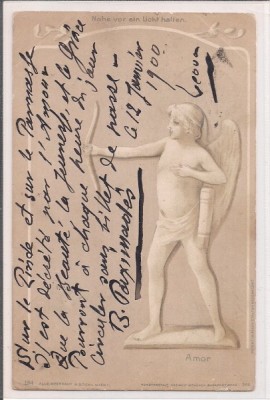 Nahe vor ein Licht halten.
Sur le Pinde et sur le Parnasse
Il est décrété par l'Amour
Que la Beauté, la Jeunesse et la Grâce
Pourront à chaque heure du jour
Circuler sans billet de passe —
le 12 Janvier
1900.
Amor